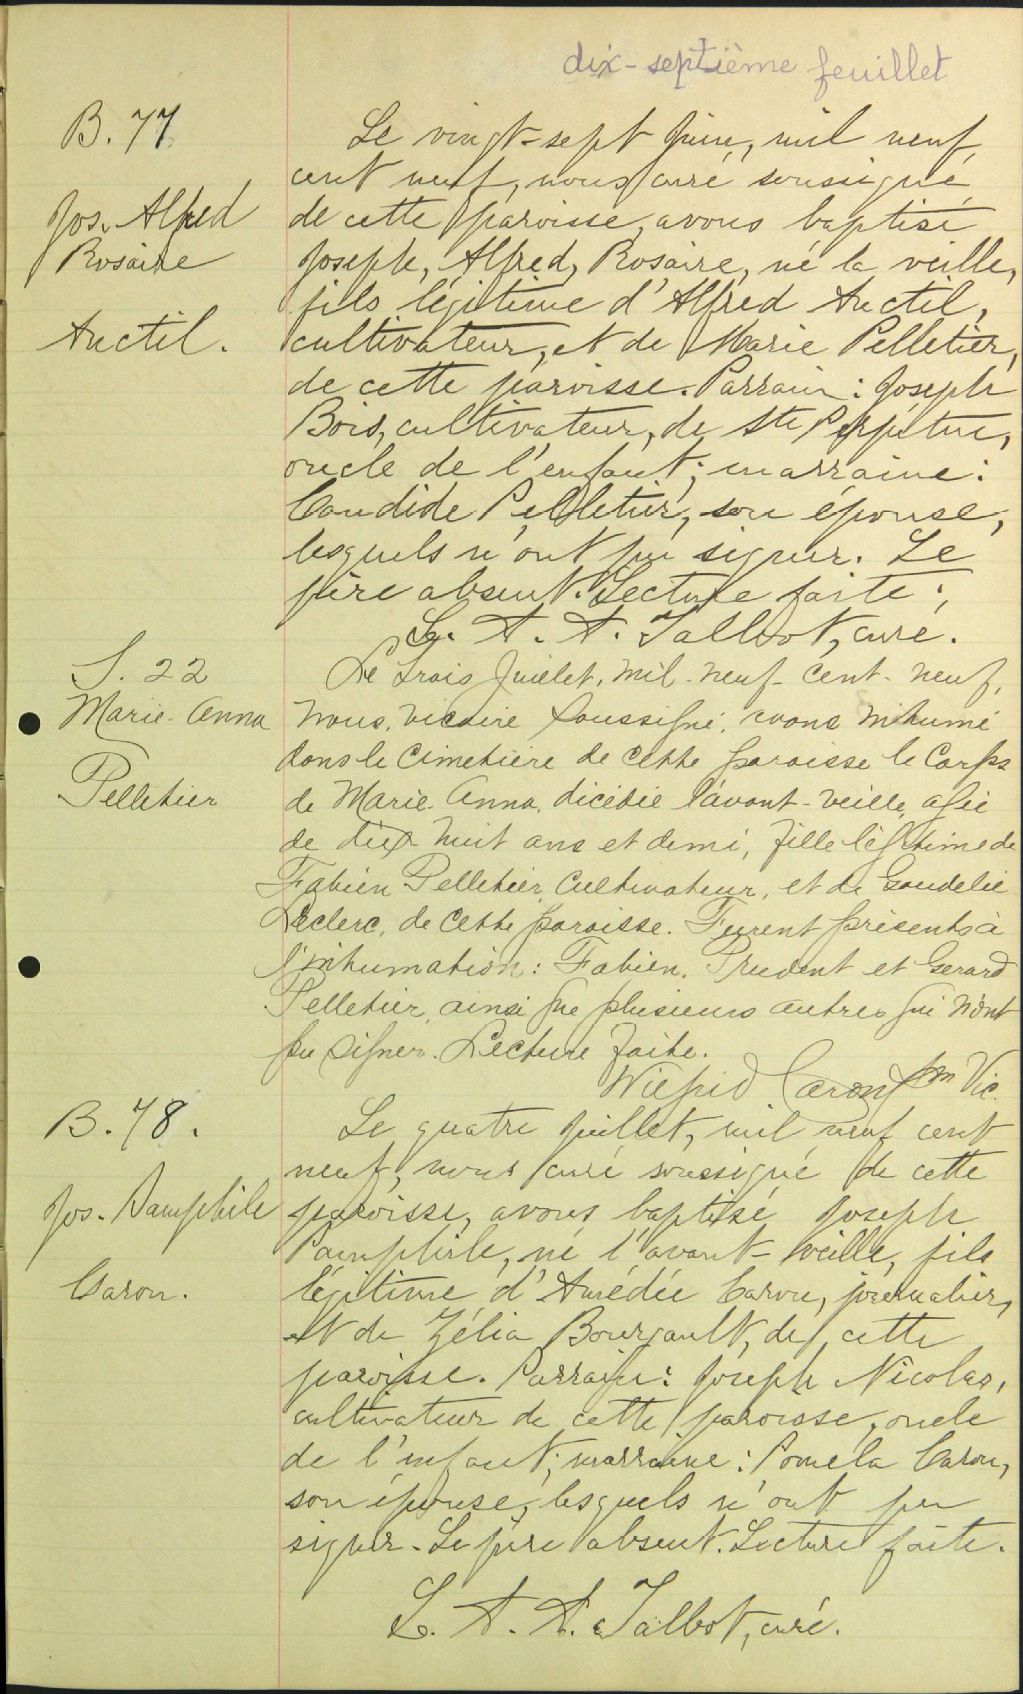 dix-septième feuillet
B. 77
Jos. Alfred
Rosaire
Auctil.
Le vingt-sept Juin, mil neuf
cent neuf, nous curé soussigné
de cette paroisse, avons baptisé
Joseph, Alfred, Rosaire, né la veille,
fils légitime d'Alfred Anctil,
cultivateur, et de Marie Pelletier,
de cette paroisse. Parrain : Joseph
Bois, cultivateur, de Ste Perpétue,
oncle de l'enfant; marraine :
Candide Pelletier, son épouse,
lesquels n'ont pu signer. Le
père absent. Lecture faite.
L. A. A. Talbot, curé.
S. 22
Marie-Anna
Pelletier
Le trois Juillet, mil-neuf-cent-neuf,
nous, vicaire soussigné, avons inhumé
dans le cimetière de cette paroisse le corps
de Marie-Anna, décédée l'avant-veille, agée
de dix-huit ans et demi, fille légitime de
Fabien Pelletier, cultivateur, et de Gaudelie
Leclerc, de cette paroisse. Furent présents à
l'inhumation : Fabien, Prudent et Gerard
Pelletier, ainsi que plusieurs autres qui n'ont
pu signer. Lecture faite.
Wilfrid Caron Ptre Vic.
B. 78.
Jos. Pamphile
Caron.
Le quatre Juillet, mil neuf cent
neuf, nous curé soussigné de cette
paroisse, avons baptisé Joseph
Pamphile, né l'avant-veille, fils
légitime d'Amédée Caron, journalier,
et de Zélia Bourgault, de cette
paroisse. Parrain : Joseph Nicolas,
cultivateur de cette paroisse, oncle
de l'enfant; marraine : Poméla Caron,
son épouse, lesquels n'ont pu
signer. Le père absent. Lecture faite.
L. A. A. Talbot, curé.